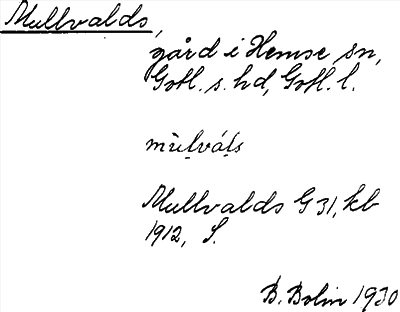 Mullvalds,
gård i Hemse sn,
Gotl. s. hd, Gotl. l.
mùḷváḷs
Mullvalds G 31, kb
1912, S.
B. Bolin 1930